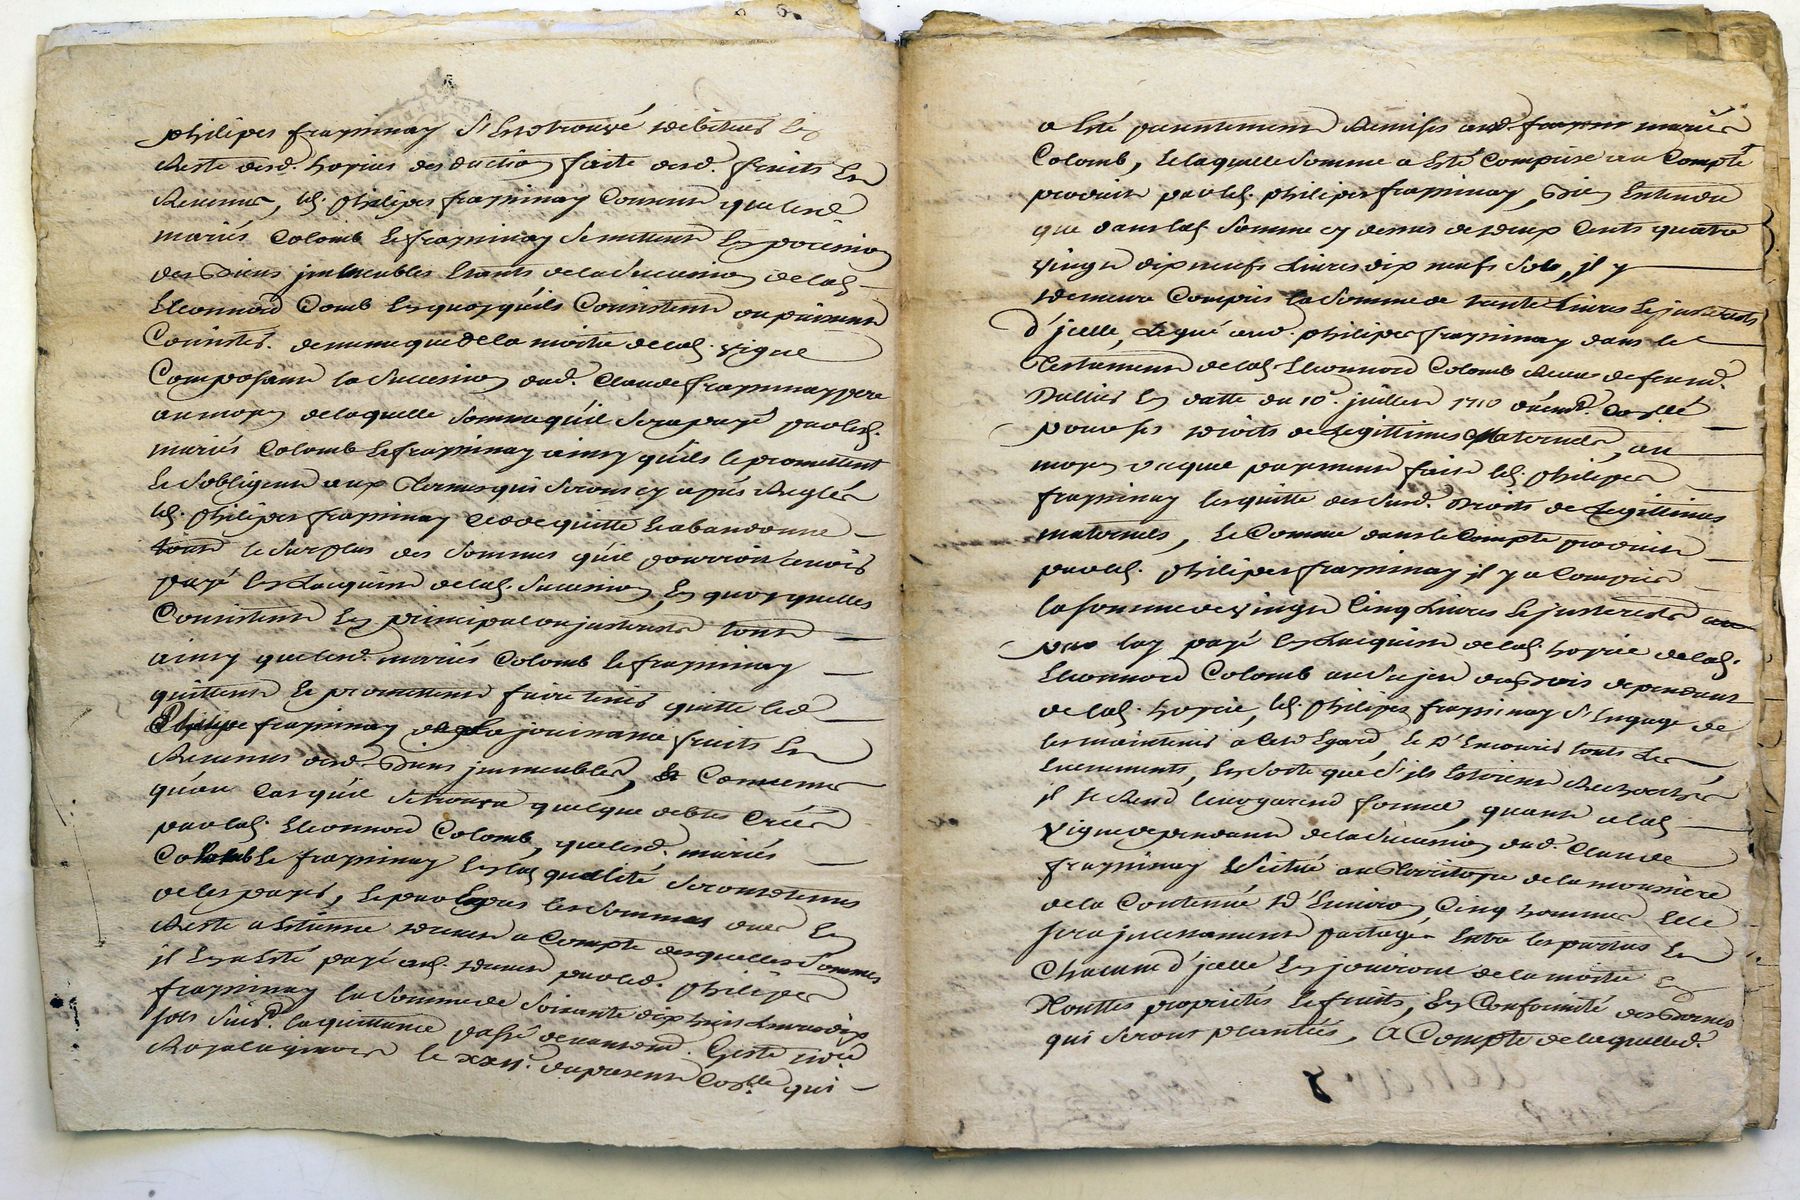 philipes frayssinay s'est trouvé debiteur en
Reste desd. hoyries deduction faite desd. fruits et
Revenus, led. philipes frayssinay consent que lesd.
mariés Colomb et frayssinay se mettent en possession
des biens immeubles estants de la succession de lad.
Eleonnord Comb en quoy qu'ils Consistent ou puissent
Consister. de meme que de la moitié de lad. vigne
Composant la succession dud. Claude frayssinay pere
au moyen de laquelle somme qu'il sera payé par lesd.
mariés Colomb et frayssinay ainsy qu'ils le promettent
et s'obligent aux Termes qui seront cy aprés Reglés
led. philipes frayssinay cede quitte et abandonne
tout le surplus des sommes qu'il pourroit avoir
payé en l'acquit de lad. succession, en quoy quelles
Consistent en principal ou justerests tout
ainsy que lesd. mariés Colomb et frayssinay
quittent et promettent faire tenir quitte led.
Philipe frayssinay de la jouissance fruits et
Revenus desd. biens immeubles, et Convenu
qu'au cas qu'il se trouva quelque debtes Créés
par lad. Eleonnord Colomb, que lesd. mariés
Colomb et frayssinay en lad. qualité seront tenus
de les payer, et par exprés les sommes dues en
Reste a Estienne a Compte desquelles sommes
il en a esté payé aud. par led. philipes
frayssinay la somme de soixante dix huit livres dix
sols suiv. la quittance passé devant
Royal le XXII. du present qui
a esté presentement Remise aud. mariés
Colomb, et laquelle somme a esté comprise au Compte
produit par led. philipes frayssinay, bien entendu
que dans lad. somme cy dessus de deux cents quatre
vingt dix neuf livres dix neuf sols, il y
demeure compris la somme de trente livres et justerests
d'icelle, legué aud. philipes frayssinay dans le
Testament de lad. Eleonnord Colomb Receu de feu md.
Dallies en datte du 10e. juillet 1710 düemt. Conllé
pour ses droits de Legittimes Maternels, au
moyen duquel payement fait led. philipes
frayssinay les quitte des susd. droits de Legittimes
maternels, et Comme dans le Compte produit
par led. philipes frayssinay il y a Compris
la somme de vingt cinq livres et justerests
par luy payé en l'acquit de lad. hoyrie de lad.
Eleonnord Colomb au sujet du bois dependant
de lad. hoyrie, led. philipes frayssinay s'engage de
les maintenir a cet Egard, et d'encourir touts les
Evenements, en sorte que s'ils Estoient Recherchés
il se Rend leur garend formel, quant a lad.
vigne dependante de la succession dud. Claude
frayssinay et située au Terroitoire de la moussiere
de la Contenue d'Environ cinq hommes Elle
sera jncessamment partagée Entre les parties et
Chacune d'jcelle en jouiront de la moitié en
Touttes proprietés et fruits, en Conformité des bornes
qui seront plantées, A Compte de laquelle d.